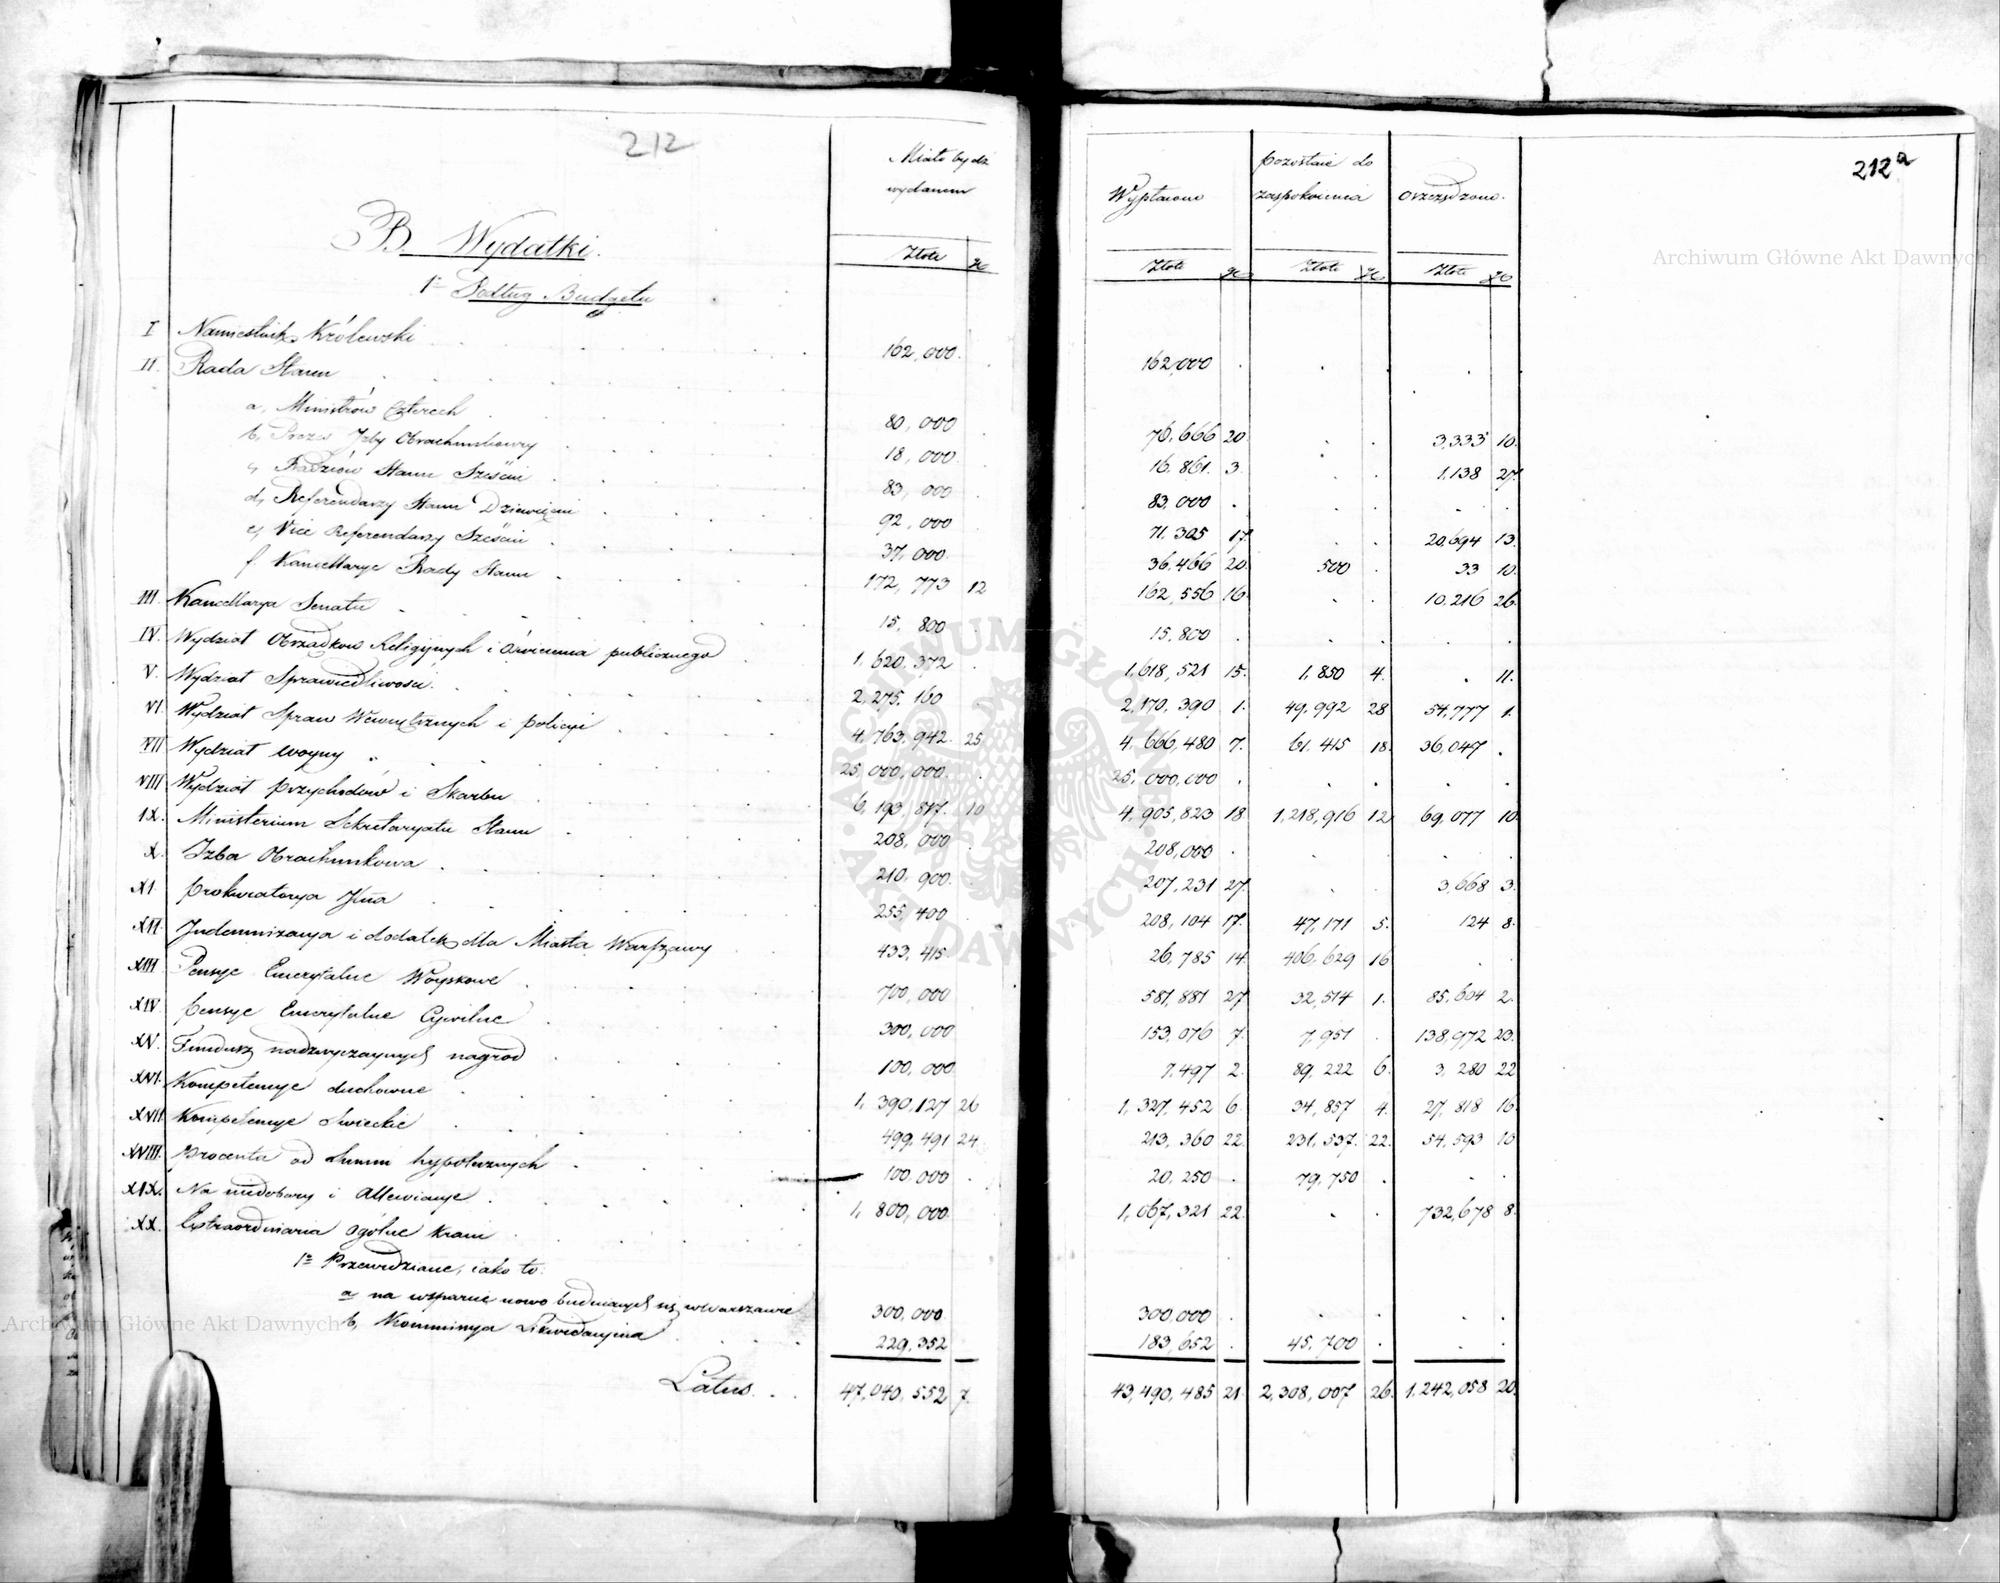 212
212a
B. Wydatki.
1º Podług Budgetu
Miało bydź wydanem | Wypłacono | pozostaie do zaspokoienia | oszczędzono.
Złote | gr | Złote | gr | Złote | gr | Złote | gr
I Namiestnik Królewski . 162,000. | 162,000 . | . | .
II. Rada Stanu
a, Ministrów Czterech . 80,000 | 76,666 20. | . . | 3,333 10.
b, Prezes Izby Obrachunkowey . 18,000. | 16,861. 3. | . . | 1,138 27.
c, Radzców Stanu Sześciu . 83,000 . | 83,000 . | . . | . .
d, Referendarzy Stanu Dziewięciu . 92,000 | 71,305 17. | . . | 20,694 13.
e, Vice Referendarzy Sześciu . 37,000. | 36,466 20. | 500 . | 33 10.
f. Kancellarye Rady Stanu . 172,773 12 | 162,556 16. | . . | 10,216 26.
III. Kancellarya Senatu . 15,800 . | 15,800 . | . . | . .
IV. Wydział Obrządkow Religiynych i Oświecenia publicznego . 1,620,372 . | 1,618,521 15. | 1,850 4. | . 11.
V. Wydział Sprawiedliwości. 2,275,160 | 2,170,390 1. | 49,992 28 | 54,777 1.
VI. Wydział Spraw Wewnętrznych i policyi . 4,763,942. 25 | 4,666,480 7. | 61,415 18. | 36,047 .
VII Wydział Woyny . 25,000,000. . | 25,000,000 . | . . | . .
VIII Wydział przychodów i Skarbu . 6,193,817. 10 | 4,905,823 18. | 1,218,916 12. | 69,077 10.
IX. Ministerium Sekretaryatu Stanu . 208,000 . | 208,000 . | . . | . .
X. Izba Obrachunkowa . 210,900. | 207,231 27. | . . | 3,668 3.
XI. prokuratorya Jlna . 255,400 . | 208,104 17. | 47,171 5. | 124 8.
XII. Indemnizacya i dodatek dla Miasta Warszawy . 433,415. | 26,785 14. | 406,629 16 | . .
XIII Pensye Emerytalne Woyskowe . 700,000 | 581,881 27. | 32,514 1. | 85,604 2.
XIV. pensye Emerytalne Cywilne . 300,000 | 153,076 7. | 7,951 . | 138,972 23.
XV. Fundusz nadzwyczaynych nagród . 100,000 | 7,497 2. | 89,222 6. | 3,280 22
XVI. Kompetencye duchowne . 1,390,127 26 | 1,327,452 6. | 34,857 4. | 27,818 16.
XVII Kompetencye Swieckie . 499,491 24. | 213,360 22. | 231,537. 22. | 54,593 10
XVIII. Procenta od Summ hypotecznych . 100,000 . | 20,250 . | 79,750 . | . .
XIX. Na niedobory i Allewiacye . 1,800,000. | 1,067,321 22. | . . | 732,678 8.
XX. Extraordinaria Ogólne Kraiu .
1º Przewidziane, iako to:
a, na wsparcie nowo budujących się w Warszawie 300,000 | 300,000 . | . . | . .
b, Kommissya Likwidacyina . 229,352 | 183,652 . | 45,700 . | . .
Latus . . 47,040,552 7. | 43,490,485 21. | 2,308,007 26. | 1,242,058 20.
Archiwum Główne Akt Dawnych
Archiwum Główne Akt Dawnych
ARCHIWUM GŁÓWNE AKT DAWNYCH